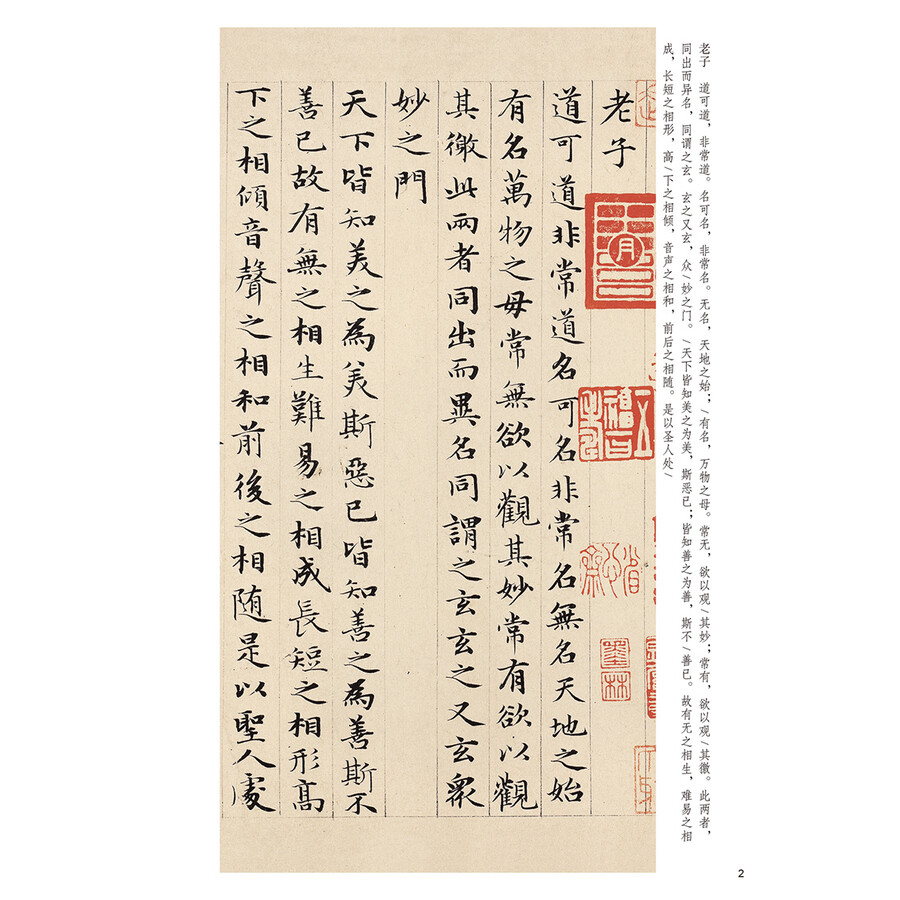 老子　道可道，非常道。名可名，非常名。无名，天地之始；/有名，万物之母。常无，欲以观/其妙；常有，欲以观/其徼。此两者，
同出而异名，同谓之玄。玄之又玄，众/妙之门。/天下皆知美之为美，斯恶已；皆知善之为善，斯不/善已。故有无之相生，难易之相
成，长短之相形，高/下之相倾，音声之相和，前后之相随。是以圣人处/
墨林
老子
道可道非常道名可名非常名無名天地之始
有名萬物之母常無欲以觀其妙常有欲以觀
其徼此兩者同出而異名同謂之玄玄之又玄衆
妙之門
天下皆知美之為美斯惡已皆知善之為善斯不
善已故有無之相生難易之相成長短之相形髙
下之相傾音聲之相和前後之相随是以聖人處
2